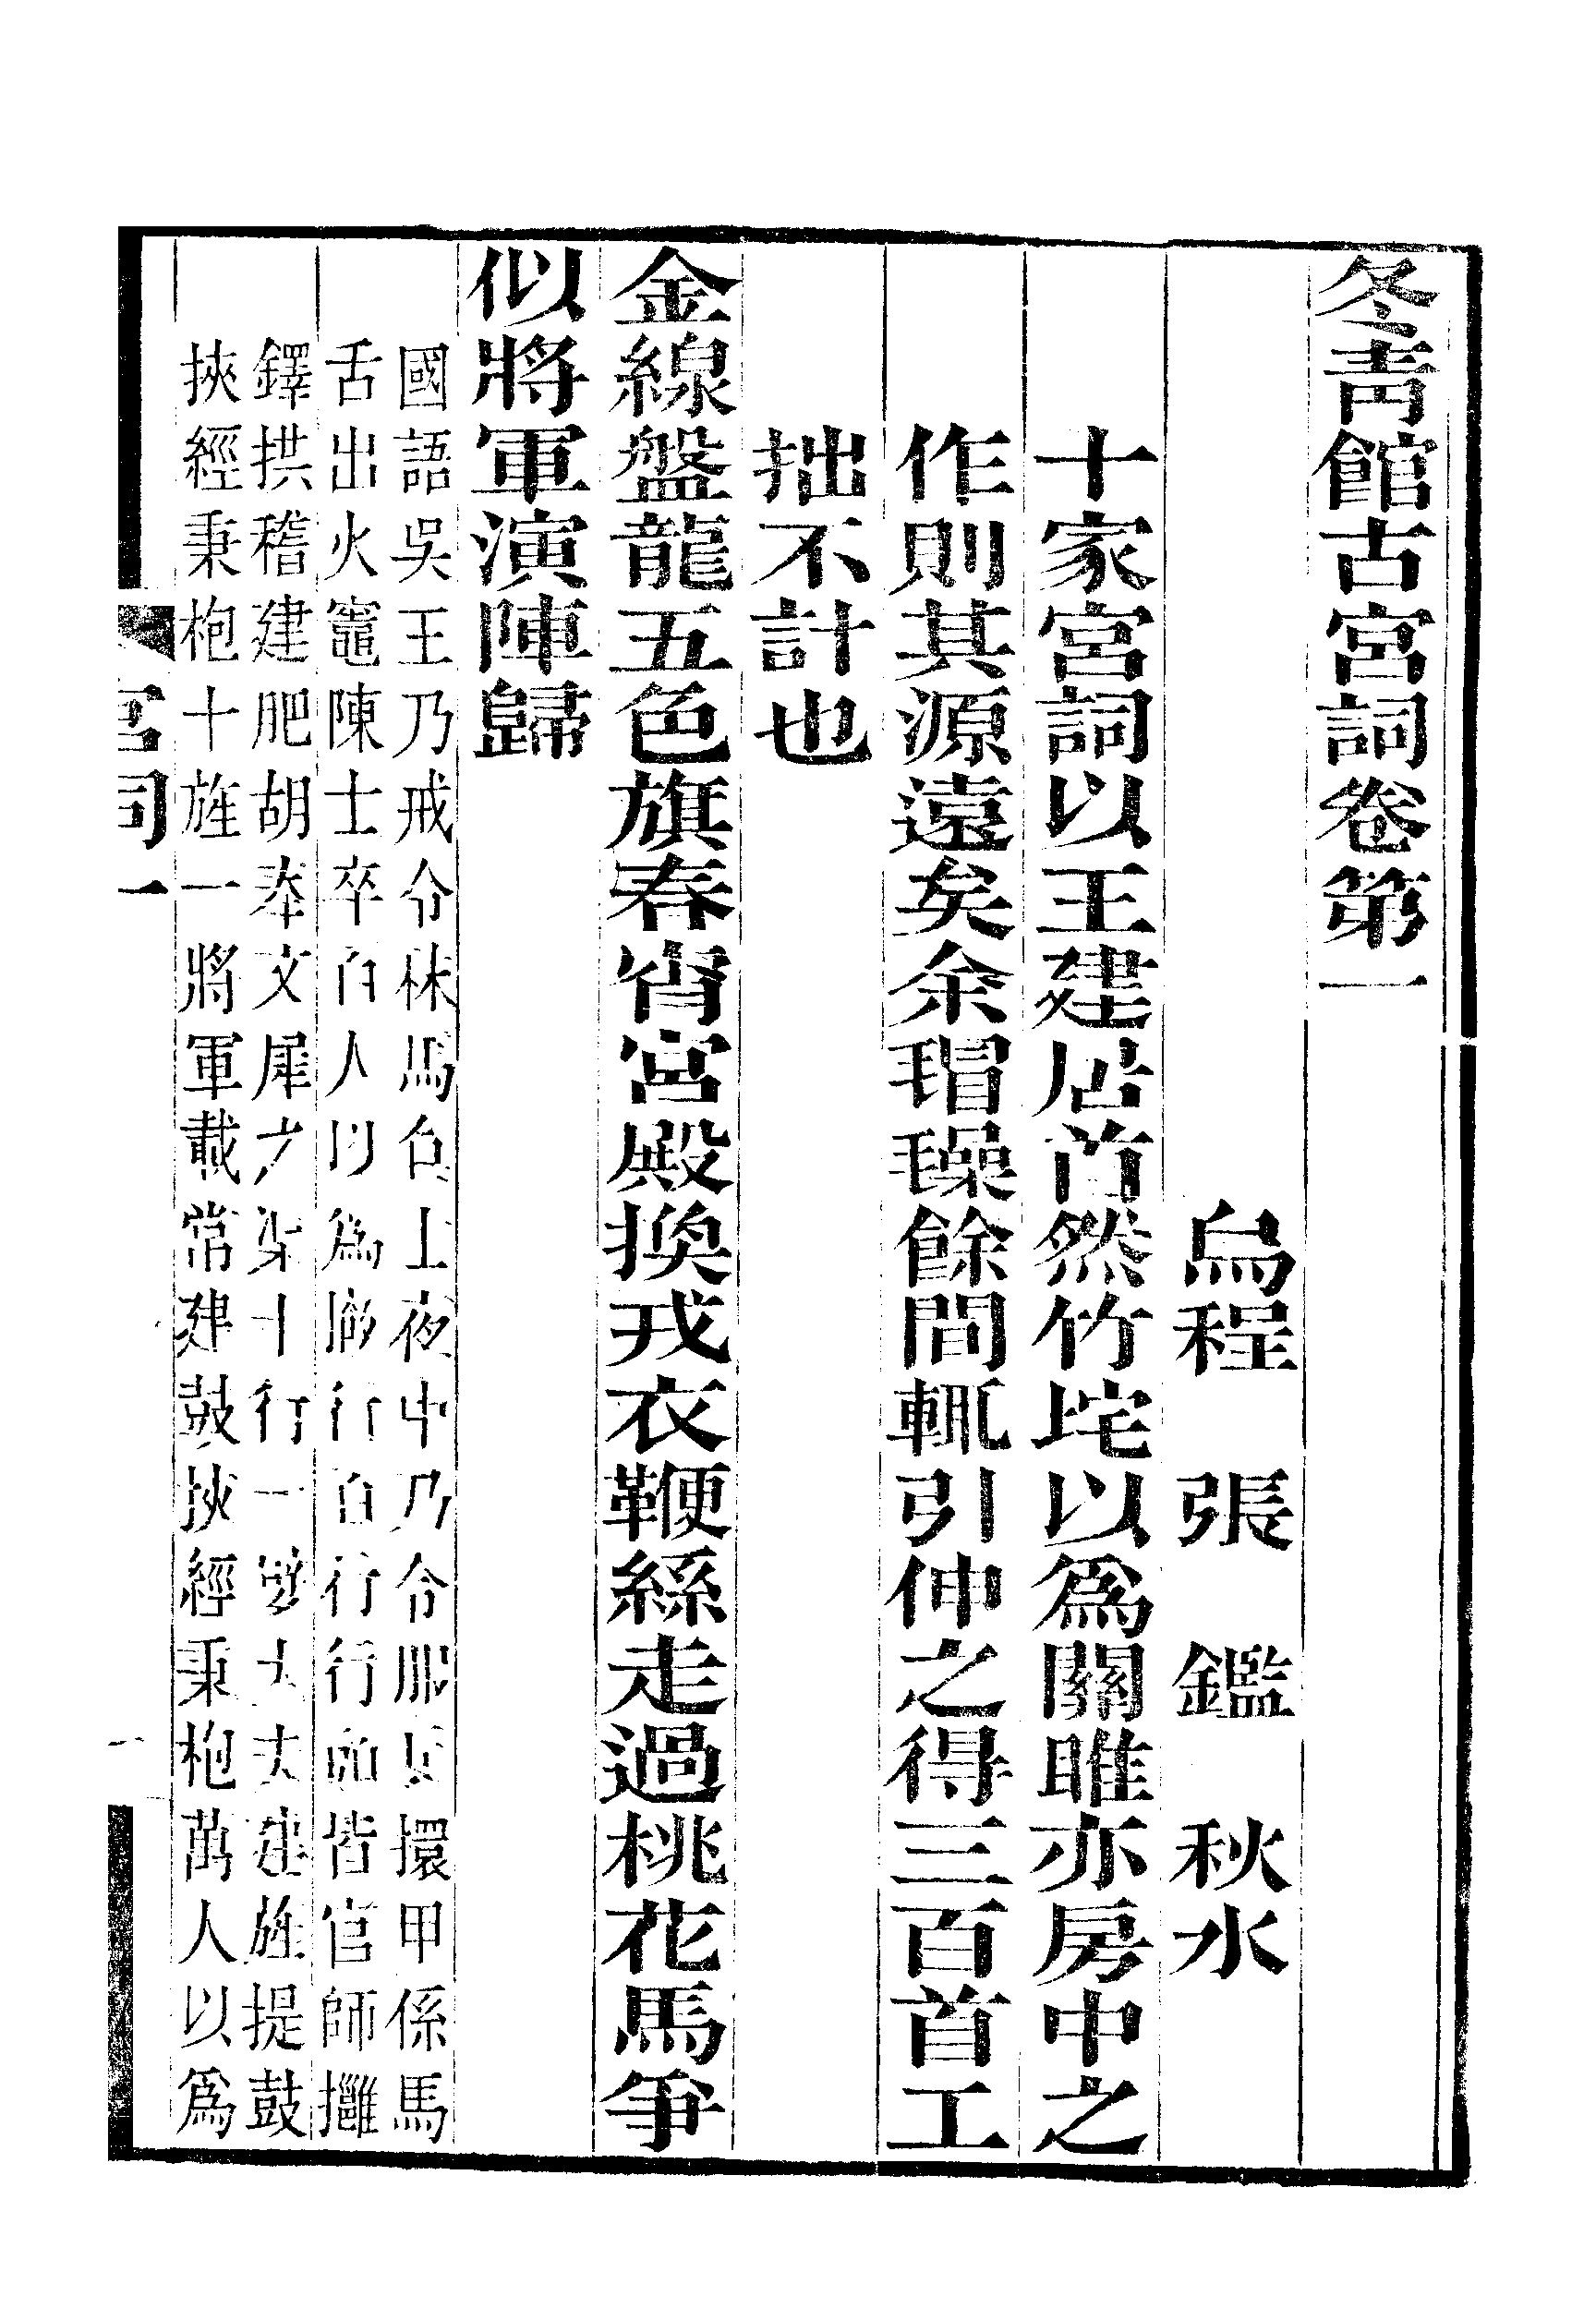 冬青館古宮詞卷第一
烏程 張 鑑 秋水
十家宮詞以王建居首然竹垞以爲關雎亦房中之
作則其源遠矣余瑁璪餘間輒引伸之得三百首工
拙不計也
金線盤龍五色旗春宵宮殿換戎衣鞭絲走過桃花馬爭
似將軍演陣歸
國語吳王乃戒令秣馬食士夜中乃令服兵擐甲係馬
舌出火竈陳士卒百人以爲徹行百行行頭皆官師擁
鐸拱稽建肥胡奉文犀之渠十行一嬖大夫建旌提鼓
挾經秉枹十旌一將軍載常建鼓挾經秉枹萬人以爲
宮詞一
一